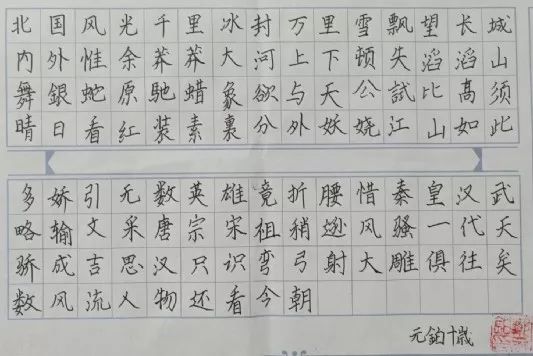 北国风光千里冰封万里雪飘望长城
内外惟余莽莽大河上下顿失滔滔山
舞銀蛇原馳蜡象欲与天公試比高须
晴日看红装素裹分外妖娆江山如此
多娇引无数英雄竟折腰惜秦皇汉武
略输文采唐宗宋祖稍逊风骚一代天
骄成吉思汉只识弯弓射大雕俱往矣
数风流人物还看今朝
元铂十歲